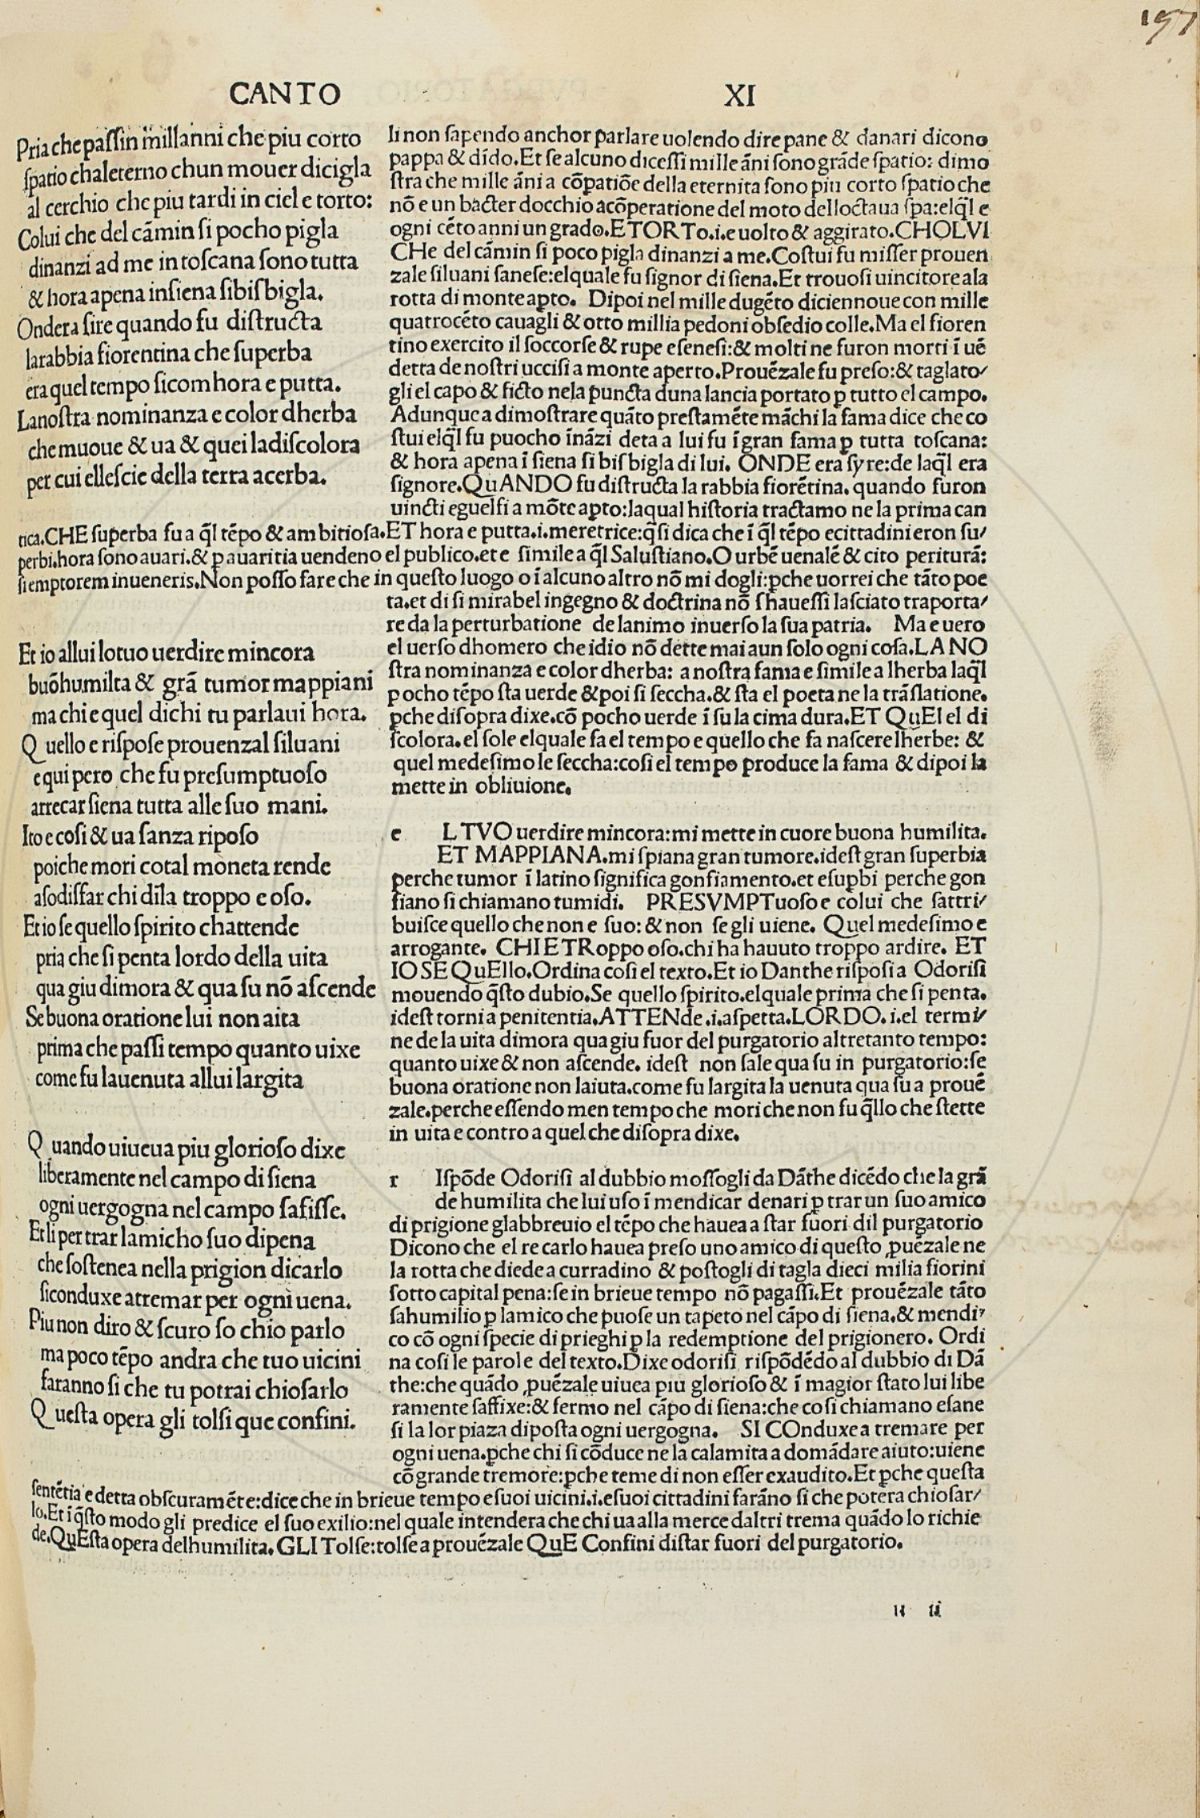 197
CANTO XI
Pria che paſſin millanni che piu corto
ſpatio chaleterno chun mouer dicigla
al cerchio che piu tardi in ciel e torto:
Colui che del cāmin ſi pocho pigla
dinanzi ad me in toſcana ſono tutta
& hora apena inſiena ſibiſbigla.
Ondera ſire quando fu diſtructa
larabbia fiorentina che ſuperba
era quel tempo ſicomhora e putta.
Lanoſtra nominanza e color dherba
che muoue & ua & quei ladiſcolora
per cui elleſcie della terra acerba.
li non ſapendo anchor parlare uolendo dire pane & danari dicono
pappa & dido. Et ſe alcuno diceſſi mille āni ſono grāde ſpatio: dimo
ſtra che mille āni a cōpatiōe della eternita ſono piu corto ſpatio che
nō e un bacter docchio acōperatione del moto delloctaua ſpa:elql̄ e
ogni cēto anni un grado.ETORTo.i.e uolto & aggirato.CHOLVI
CHe del cāmin ſi poco pigla dinanzi a me.Coſtui fu miſſer prouen
zale ſiluani ſaneſe:elquale fu ſignor di ſiena.Et trouoſi uincitore ala
rotta di monte apto. Dipoi nel mille dugēto diciennoue con mille
quatrocēto cauagli & otto millia pedoni obſedio colle.Ma el fioren
tino exercito il ſoccorſe & rupe eſeneſi:& molti ne furon morti ī uē
detta de noſtri ucciſi a monte aperto.Prouēzale fu preſo:& taglato/
gli el capo & ficto nela puncta duna lancia portato p̱ tutto el campo.
Adunque a dimoſtrare quāto preſtamēte māchi la fama dice che co
ſtui elql̄ fu puocho īnāzi deta a lui fu ī gran fama p̱ tutta toſcana:
& hora apena ī ſiena ſi biſbigla di lui. ONDE era ſyre:de laql̄ era
ſignore.QuANDO fu diſtructa la rabbia fiorētina. quando furon
uincti eguelfi a mōte apto:laqual hiſtoria tractamo ne la prima can
tica.CHE ſuperba fu a ql̄ tēpo & ambitioſa.ET hora e putta.i.meretrice:qſi dica che ī ql̄ tēpo ecittadini eron ſu/
perbi.hora ſono auari.& p̱ auaritia uendeno el publico.et e ſimile a ql̄ Saluſtiano.O urbē uenalē & cito periturā:
ſi emptorem inueneris.Non poſſo fare che in queſto luogo o ī alcuno altro nō mi dogli:pche uorrei che tāto poe
ta.et di ſi mirabel ingegno & doctrina nō ſhaueſſi laſciato traporta/
re da la perturbatione de lanimo inuerſo la ſua patria. Ma e uero
el uerſo dhomero che idio nō dette mai aun ſolo ogni coſa.LA NO
ſtra nominanza e color dherba: a noſtra fama e ſimile a lherba laql̄
pocho tēpo ſta uerde & poi ſi ſeccha.& ſta el poeta ne la trāſlatione.
pche diſopra dixe.cō pocho uerde ī ſu la cima dura.ET QuEI el di
ſcolora.el ſole elquale fa el tempo e quello che fa naſcere lherbe: &
quel medeſimo le ſeccha:coſi el tempo produce la fama & dipoi la
mette in obliuione.
Et io allui lo tuo uerdire mincora
buōhumilta & grā tumor mappiani
ma chi e quel dichi tu parlaui hora.
Quello e riſpoſe prouenzal ſiluani
e qui pero che fu preſumptuoſo
arrecar ſiena tutta alle ſuo mani.
Ito e coſi & ua ſanza ripoſo
poiche mori cotal moneta rende
aſodiſfar chi dila troppo e oſo.
Et io ſe quello ſpirito chattende
pria che ſi penta lordo della uita
qua giu dimora & qua ſu nō aſcende
Se buona oratione lui non aita
prima che paſſi tempo quanto uixe
come fu lauenuta allui largita
e LTVO uerdire mincora:mi mette in cuore buona humilita.
ET MAPPIANA.mi ſpiana gran tumore.ideſt gran ſuperbia
perche tumor ī latino ſignifica gonfiamento.et eſupbi perche gon
fiano ſi chiamano tumidi. PRESVMPTuoſo e colui che ſattri/
buiſce quello che non e ſuo: & non ſe gli uiene. Quel medeſimo e
arrogante. CHI E TRoppo oſo.chi ha hauuto troppo ardire. ET
IO SE QuEllo.Ordina coſi el texto.Et io Danthe riſpoſi a Odoriſi
mouendo qſto dubio.Se quello ſpirito.elquale prima che ſi penta.
ideſt torni a penitentia.ATTENde.i.aſpetta.LORDO.i.el termi/
ne de la uita dimora qua giu fuor del purgatorio altretanto tempo:
quanto uixe & non aſcende. ideſt non ſale qua ſu in purgatorio:ſe
buona oratione non laiuta.come fu largita la uenuta qua ſu a prouē
zale.perche eſſendo men tempo che mori che non fu qllo che ſtette
in uita e contro a quel che diſopra dixe.
Quando uiueua piu glorioſo dixe
liberamente nel campo di ſiena
ogni uergogna nel campo ſafiſſe.
Et li per trar lamicho ſuo dipena
che ſoſtenea nella prigion dicarlo
ſiconduxe atremar per ogni uena.
Piu non diro & ſcuro ſo chio parlo
ma poco tēpo andra che tuo uicini
faranno ſi che tu potrai chioſarlo
Queſta opera gli tolſi que confini.
r Iſpōde Odoriſi al dubbio moſſogli da Dāthe dicēdo che la grā
de humilita che lui uſo ī mendicar denari p̱ trar un ſuo amico
di prigione glabbreuio el tēpo che hauea a ſtar fuori dil purgatorio
Dicono che el re carlo hauea preſo uno amico di queſto ꝓuēzale ne
la rotta che diede a curradino & poſtogli di tagla dieci milia fiorini
ſotto capital pena:ſe in brieue tempo nō pagaſſi.Et prouēzale tāto
ſahumilio p̱ lamico che puoſe un tapeto nel cāpo di ſiena.& mendi/
co cō ogni ſpecie di prieghi p̱ la redemptione del prigionero. Ordi
na coſi le parole del texto.Dixe odoriſi riſpōdēdo al dubbio di Dā
the:che quādo ꝓuēzale uiuea piu glorioſo & ī magior ſtato lui libe
ramente ſaffixe:& fermo nel cāpo di ſiena:che coſi chiamano eſane
ſi la lor piaza dipoſta ogni uergogna. SI COnduxe a tremare per
ogni uena.pche chi ſi cōduce ne la calamita a domādare aiuto:uiene
cō grande tremore:pche teme di non eſſer exaudito.Et pche queſta
ſentētia e detta obſcuramēte:dice che in brieue tempo eſuoi uicini.i.eſuoi cittadini farāno ſi che potera chioſar/
lo.Et i qſto modo gli predice el ſuo exilio:nel quale intendera che chi ua alla merce daltri trema quādo lo richie
de.QuEſta opera delhumilita.GLI Tolſe:tolſe a prouēzale QuE Confini diſtar fuori del purgatorio.